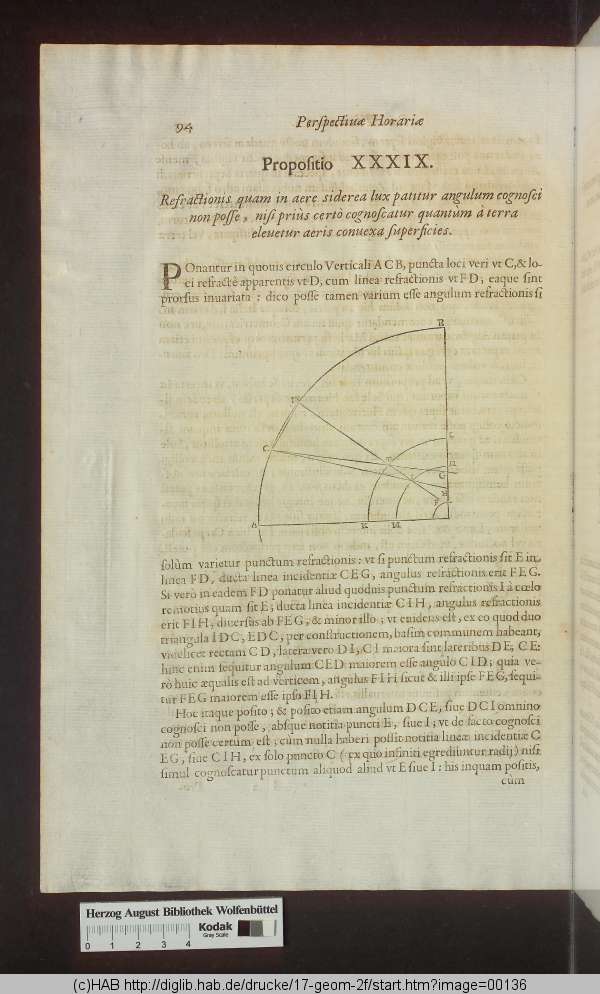 94
Perspectiuæ Horariæ
Propositio XXXIX.
Refractionis quam in aere siderea lux patitur angulum cognosci
non posse, nisi prius certò cognoscatur quantum à terra
eleuetur aeris conuexa superficies.
POnantur in quouis circulo Verticali A C B, puncta loci veri vt C, & lo-
ci refractè apparentis vt D, cum linea refractionis vt F D; eaque sint
prorsus inuariata: dico posse tamen varium esse angulum refractionis si
B
D
C
L
E
N
I
G
H
F
A
K
M
solùm varietur punctum refractionis: vt si punctum refractionis sit E in
linea F D, ducta linea incidentiæ C E G, angulus refractionis erit F E G.
Si verò in eadem F D ponatur aliud quoduis punctum refractionis I à cœlo
remotius quam sit E; ducta linea incidentiæ C I H, angulus refractionis
erit F I H, diuersus ab F E G, & minor illo; vt euidens est, ex eo quod duo
triangula I D C, E D C, per constructionem, basim communem habeant,
videlicet rectam C D, latera verò D I, C I maiora sint lateribus D E, C E:
hinc enim sequitur angulum C E D maiorem esse angulo C I D; quia ve-
rò huic æqualis est ad verticem, angulus F I H sicut & illi ipse F E G, sequi-
tur F E G maiorem esse ipso F I H.
Hoc itaque posito; & posito etiam angulum D C E, siue D C I omnino
cognosci non posse, absque notitia puncti E, siue I; vt de facto cognosci
non posse certum est; cùm nulla haberi possit notitia lineæ incidentiæ C
E G, siue C I H, ex solo puncto C (ex quo infiniti egrediuntur radij) nisi
simul cognoscatur punctum aliquod aliud vt E siue I: his inquam positis,
cum
Herzog August Bibliothek Wolfenbüttel
Kodak
Gray Scale
0 1 2 3 4
(c)HAB http://diglib.hab.de/drucke/17-geom-2f/start.htm?image=00136